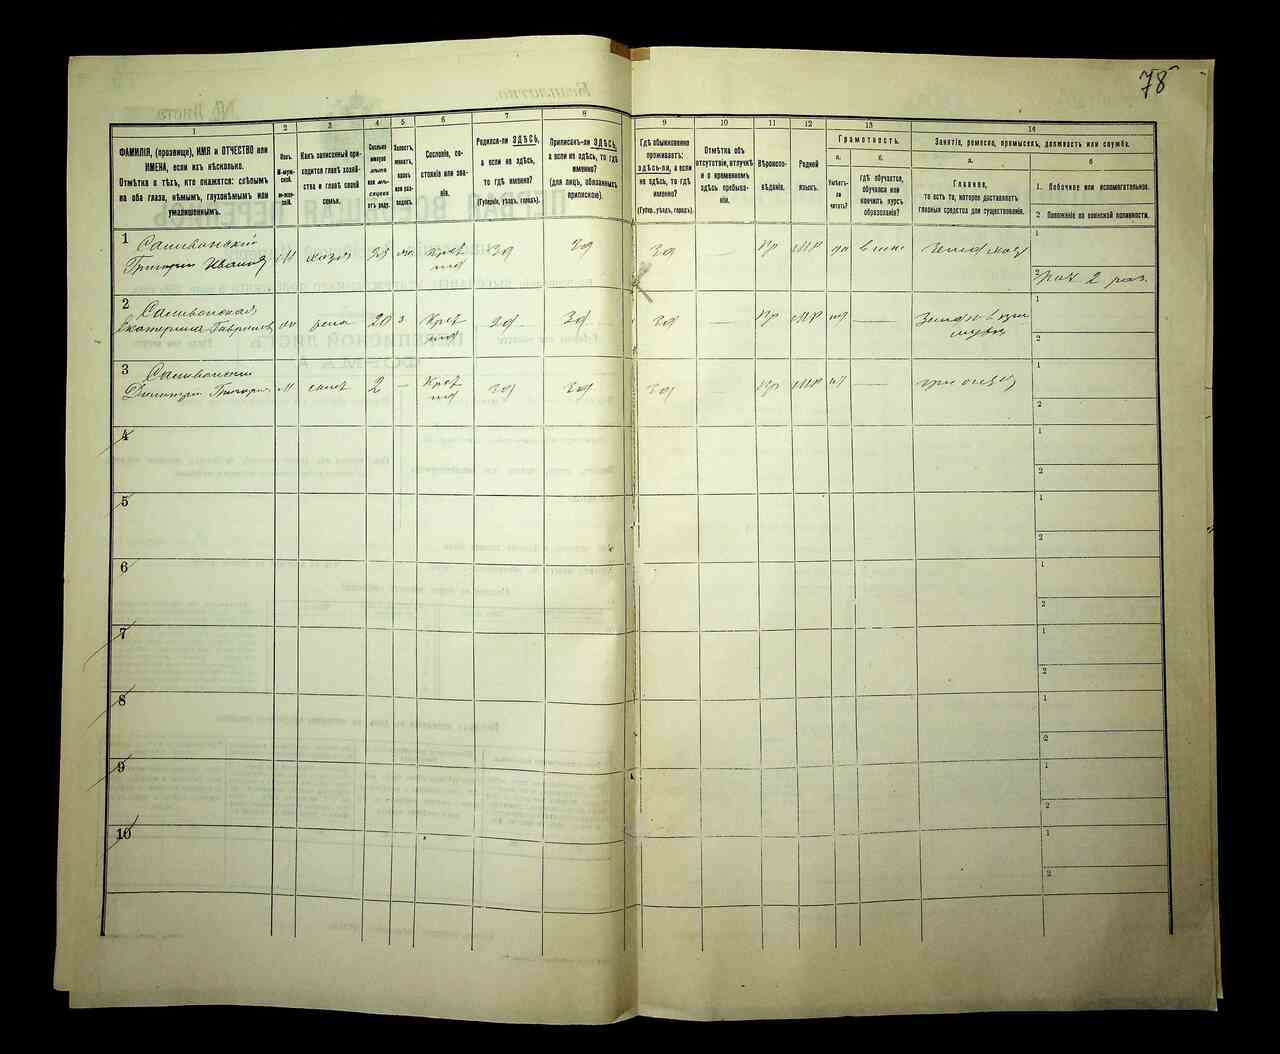 78
1
2
3
4
5
6
7
8
9
10
11
12
13
14
ФАМИЛІЯ, (прозвище), ИМЯ и ОТЧЕСТВО или
ИМЕНА, если ихъ нѣсколько.
Отмѣтка о тѣхъ, кто окажется: слѣпымъ
на оба глаза, нѣмымъ, глухонѣмымъ или
умалишеннымъ.
Полъ.
М-муж-
ской.
Ж-жен-
скій.
Какъ записанный при-
ходится главѣ хозяй-
ства и главѣ своей
семьи.
Сколько
минуло
лѣтъ
или мѣ-
сяцевъ
отъ роду.
Холостъ,
женатъ,
вдовъ
или раз-
веденъ.
Сословіе, со-
стояніе или зва-
ніе.
Родился-ли ЗДѢСЬ,
а если не здѣсь,
то гдѣ именно?
(Губернія, уѣздъ, городъ).
Приписанъ-ли ЗДѢСЬ,
а если не здѣсь, то гдѣ
именно?
(для лицъ, обязанныхъ
припискою).
Гдѣ обыкновенно
проживаетъ:
здѣсь-ли, а если
не здѣсь, то гдѣ
именно?
(Губер., уѣздъ, городъ).
Отмѣтка объ
отсутствіи, отлучкѣ
и о временномъ
здѣсь пребыва-
ніи.
Вѣроиспо-
вѣданіе.
Родной
языкъ.
Грамотность.
а.
б.
Умѣетъ-
ли
читать?
Гдѣ обучается,
обучался или
кончилъ курсъ
образованія?
Занятіе, ремесло, промыселъ, должность или служба.
а.
б
Главное,
то есть то, которое доставляетъ
главныя средства для существованія.
1. Побочное или вспомогательное.
2 Положеніе по воинской повинности.
1 Саливонскій
Григорій Иванов М хозяин
Крест
зд
зд
зд
—
Пр
МР
да
1
2
2 раз
2 Саливонская
Екатерина жена 20 з Крест
зд
зд
зд
—
Пр
МР
нт
—
1
2
3 Саливонский
М сынъ 2 — Крест
зд
зд
зд
—
Пр
МР
нт
—
при отце
1
2
4
1
2
5
1
2
6
1
2
7
1
2
8
1
2
9
1
2
10
1
2